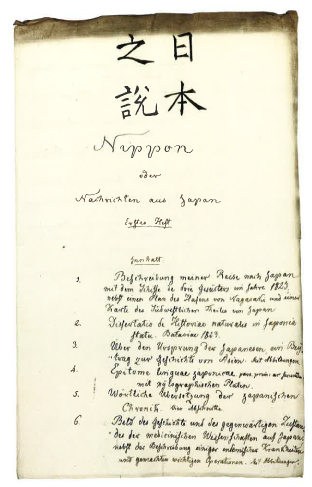 日本
之説
Nippon
oder
Nachrichten aus Japan
Erstes Heft
Inhalt
1. Beschreibung meiner Reise nach Japan
mit dem Schiffe de drie Gezusters im Jahre 1823
nebst einem Plan des Hafens von Nagasaki und einer
Karte des südwestlichen Theiles von Japan
2. Dissertatio de Historiae naturalis in Japonia
statu. Bataviae 1823.
3. Über den Ursprung der Japanesen ein Bey-
trag zur Geschichte von Asien. Mit Abbildungen.
4. Epitome linguae japonicae
mit xylographischen Platen.
5. Wörtliche Übersetzung der Japanischen
Chronik.
6. Bild der Geschichte und des gegenwärtigen Zustan-
des der medicinischen Wissenschaften auf Japan
nebst der Beschreibung einiger Krankheiten
und gemachten wichtigen Operationen. Mit Abbildungen.